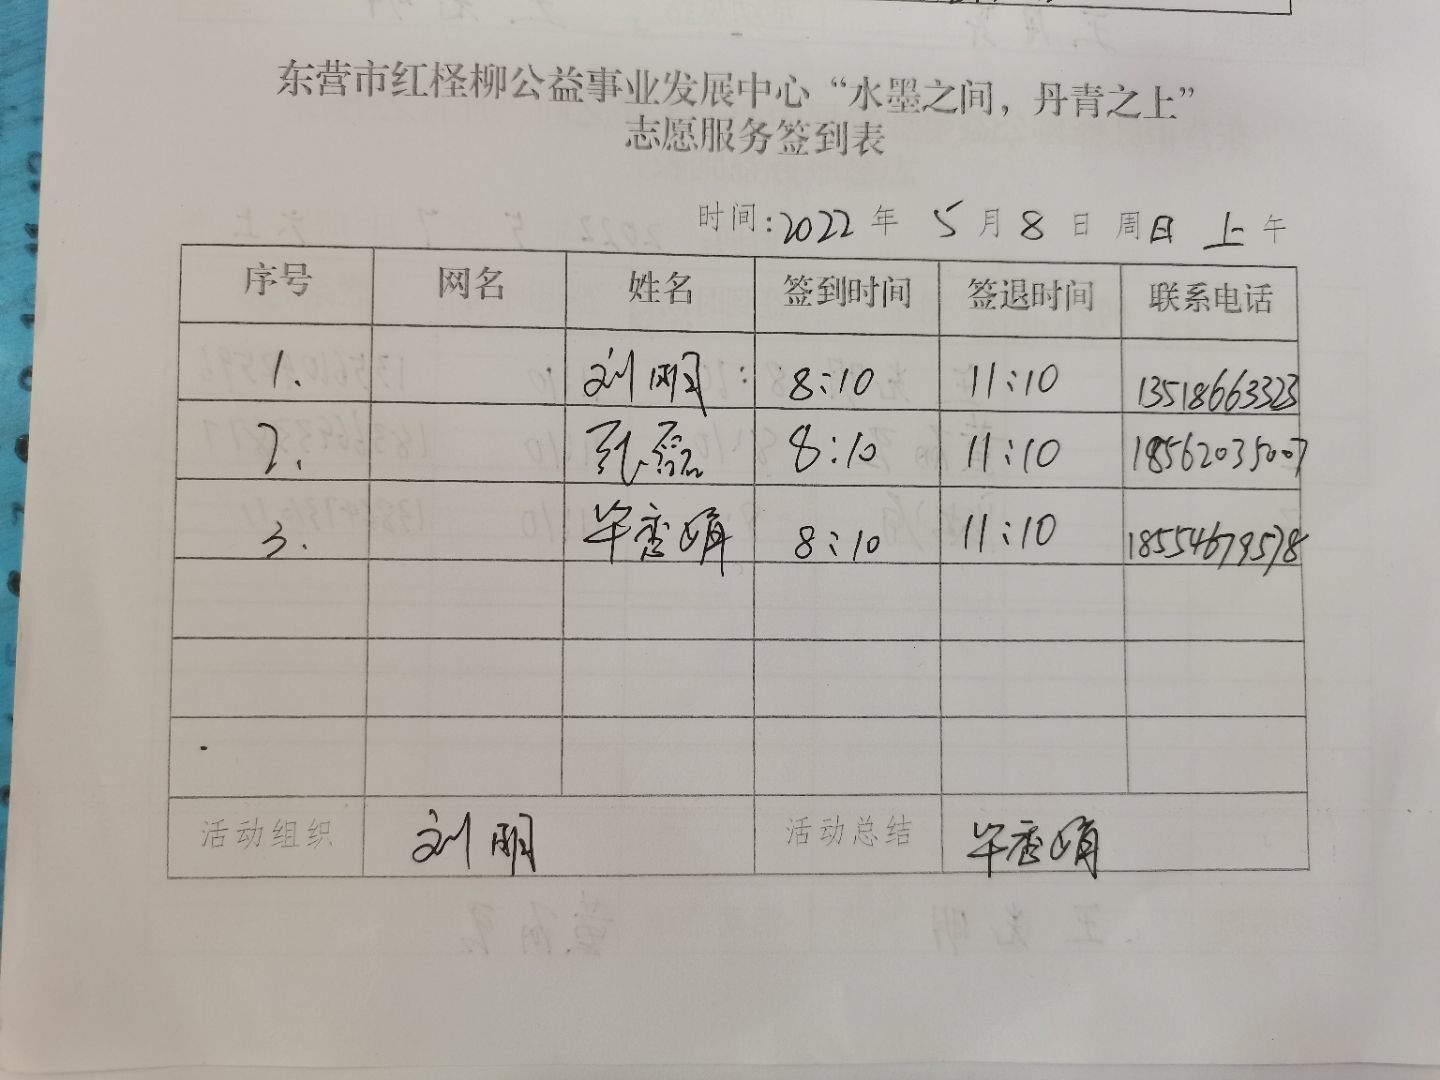 东营市红柽柳公益事业发展中心“水墨之间，丹青之上”
志愿服务签到表
时间：2022年 5月8日 周日 上午
序号 网名 姓名 签到时间 签退时间 联系电话
1. 刘明 8:10 11:10 13518663323
2. 孔磊 8:10 11:10 18562035007
3. 毕秀娟 8:10 11:10 18554679578
活动组织 刘明 活动总结 毕秀娟